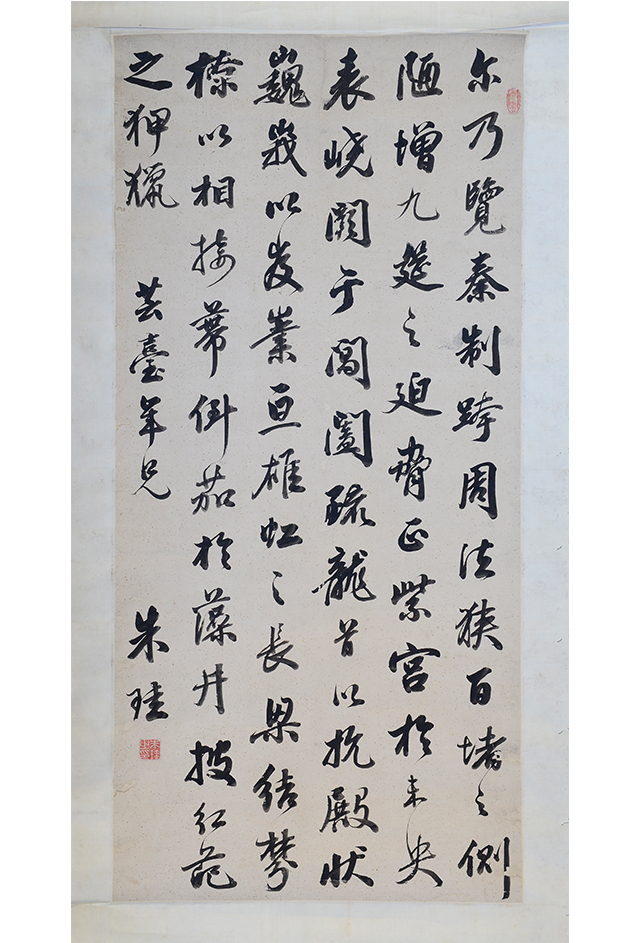 尔乃覽秦制跨周法狹百堵之側
陋增九筵之迫脅正紫宮於未央
表嶢闕于閶闔疏龍首以抗殿狀
巍峩以岌嶪亘雄虹之長梁結棼
橑以相接蒂倒茄於藻井披紅葩
之狎獵 芸臺年兄 朱珪